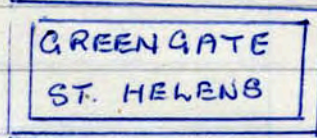 GREENGATE
ST. HELENS